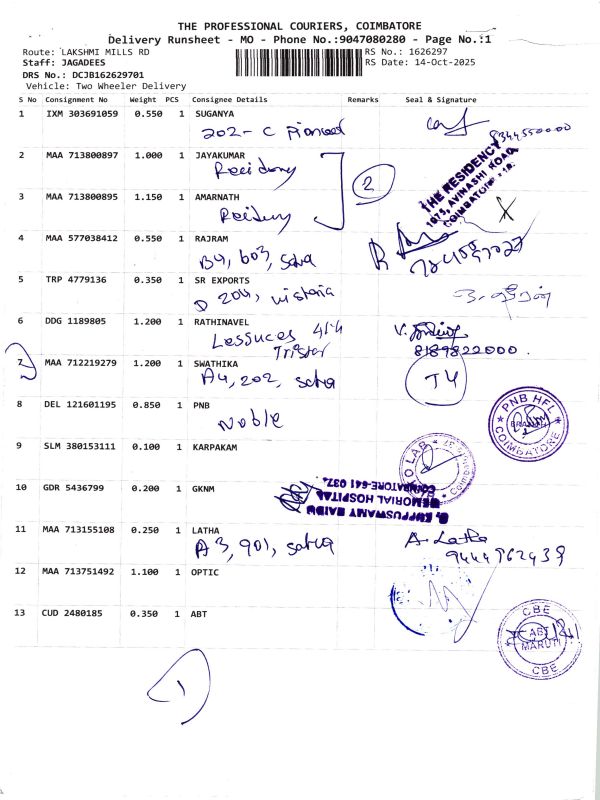 THE PROFESSIONAL COURIERS, COIMBATORE
Delivery Runsheet - MO - Phone No.:9047080280 - Page No.:1
Route: LAKSHMI MILLS RD
RS No.: 1626297
Staff: JAGADEES
RS Date: 14-Oct-2025
DRS No.: DCJB162629701
Vehicle: Two Wheeler Delivery
S No Consignment No Weight PCS Consignee Details Remarks Seal & Signature
1 IXM 303691059 0.550 1 SUGANYA
202-C
2 MAA 713800897 1.000 1 JAYAKUMAR
2
THE RESIDENCY
1076, AVINASHI ROAD
COIMBATORE
3 MAA 713800895 1.150 1 AMARNATH
4 MAA 577038412 0.550 1 RAJRAM
B4, 603,
5 TRP 4779136 0.350 1 SR EXPORTS
D 204,
6 DDG 1189805 1.200 1 RATHINAVEL
414
Tristar
8189822000
7 MAA 712219279 1.200 1 SWATHIKA
A4, 202,
T4
8 DEL 121601195 0.850 1 PNB
Noble
PNB HFL
BRANCH
COIMBATORE
9 SLM 380153111 0.100 1 KARPAKAM
LAB
10 GDR 5436799 0.200 1 GKNM
G. KUPPUSWAMY NAIDU
MEMORIAL HOSPITAL
COIMBATORE-641 037.
11 MAA 713155108 0.250 1 LATHA
A3, 901,
A. Latha
9444962439
12 MAA 713751492 1.100 1 OPTIC
13 CUD 2480185 0.350 1 ABT
CBE
ABT
MARUTI
CBE
1